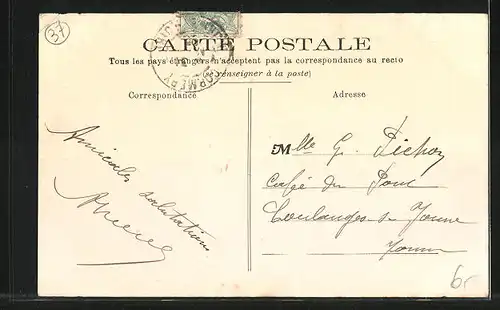 37
CARTE POSTALE
Tous les pays étrangers n'acceptent pas la correspondance au recto
(se renseigner à la poste)
Correspondance
Adresse
Amicales salutations
Mlle G. Pichon
Café du Pont
Coulanges-s-Yonne
Yonne
6-